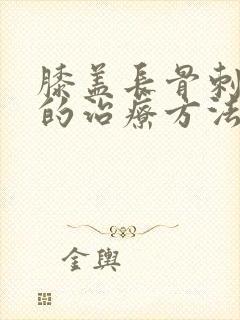 膝盖長骨刺
的治療方法
金輿